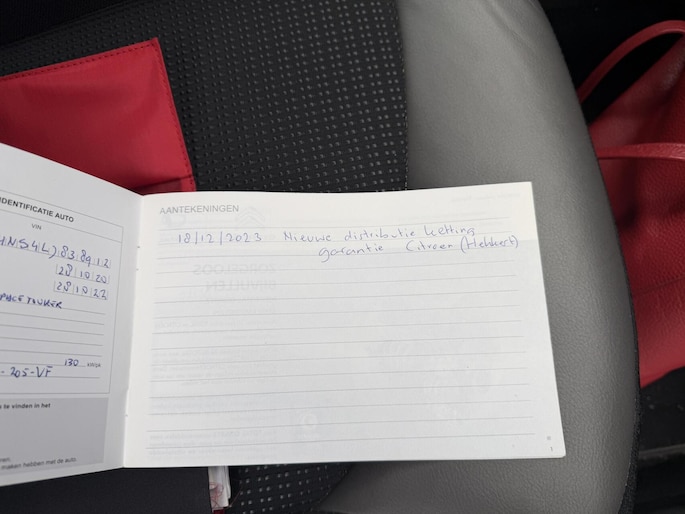 IDENTIFICATIE AUTO
VIN
83.89 1 2
28 10 20
28 10 22
130
- 205-VF
te vinden in het
maken hebben met de auto.
AANTEKENINGEN
18/12/2023 Nieuwe distributie ketting
garantie Citroen (Hekkert)
ZORGELOOS
1